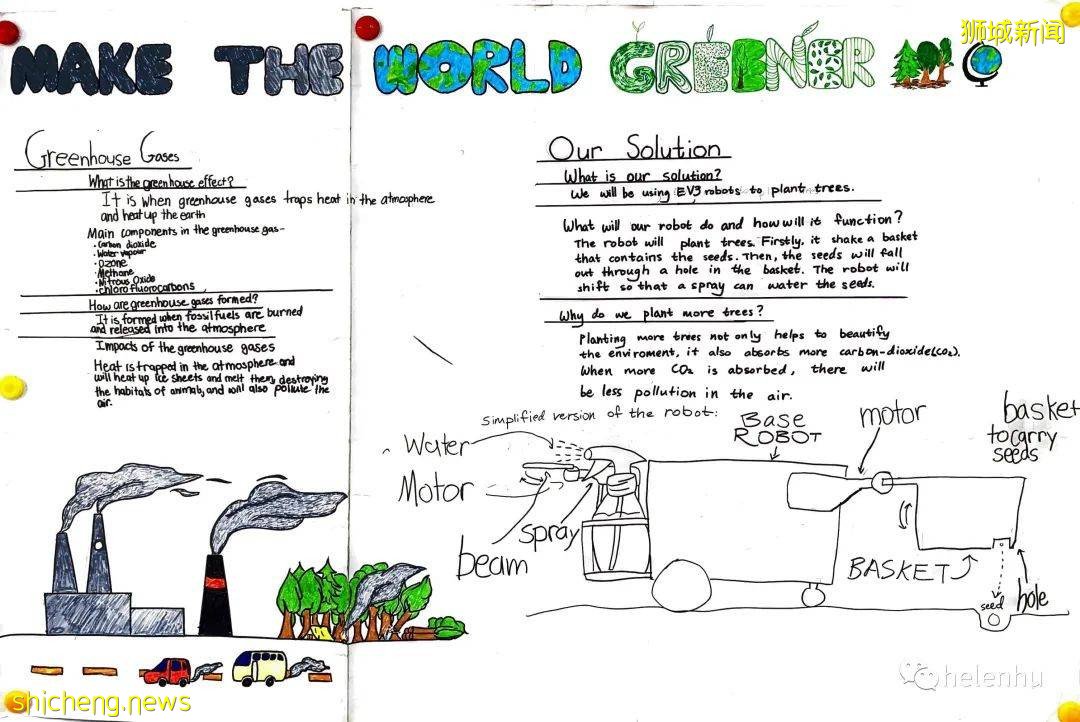 MAKE THE WORLD GREENER
狮城新闻
Greenhouse Gases
What is the greenhouse effect?
It is when greenhouse gases traps heat in the atmosphere
and heat up the earth
Main components in the greenhouse gas-
• Carbon dioxide
• Water vapour
• Ozone
• Methane
• Nitrous Oxide
• chlorofluorocarbons
How are greenhouse gases formed?
It is formed when fossil fuels are burned
and released into the atmosphere
Impacts of the greenhouse gases
Heat is trapped in the atmosphere and
will heat up ice sheets and melt them, destroying
the habitats of animals, and will also pollute the
air.
Our Solution
What is our solution?
We will be using EV3 robots to plant trees.
What will our robot do and how will it function?
The robot will plant trees. Firstly, it shake a basket
that contains the seeds. Then, the seeds will fall
out through a hole in the basket. The robot will
shift so that a spray can water the seeds.
Why do we plant more trees?
Planting more trees not only helps to beautify
the enviroment, it also absorbs more carbon-dioxide(CO2).
When more CO2 is absorbed, there will
be less pollution in the air.
Simplified version of the robot:
Water
Motor
beam
spray
BASE
ROBOT
motor
basket
to carry
seeds
BASKET
seed
hole
shicheng.news
helenhu